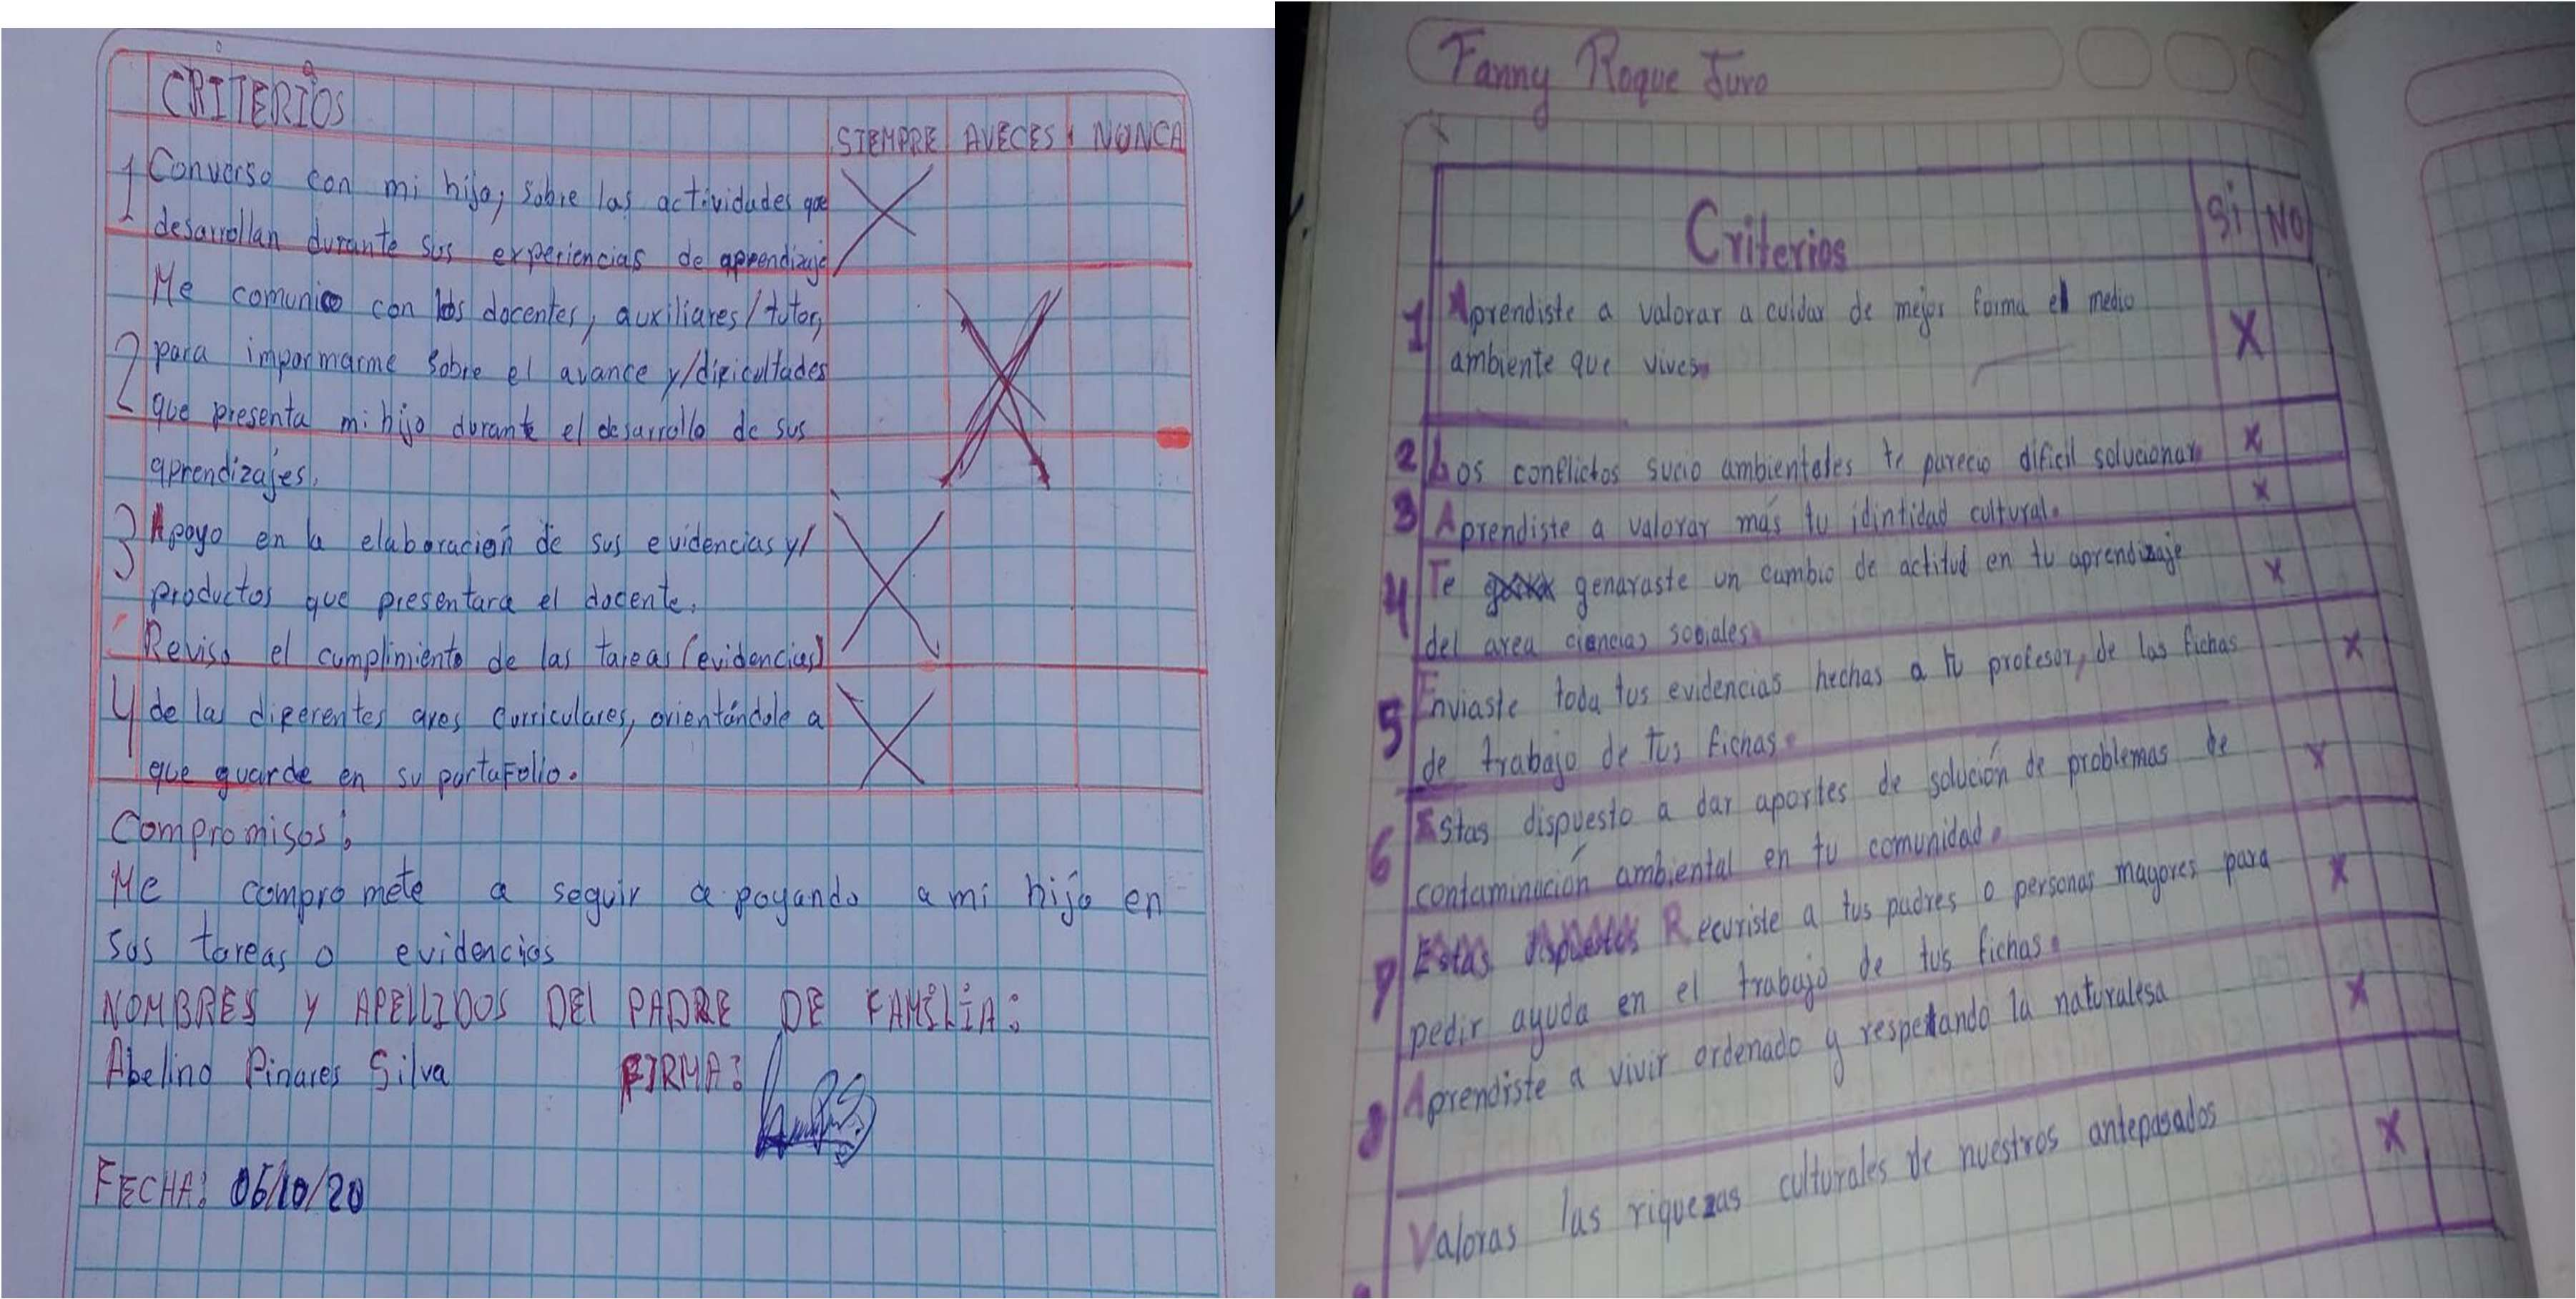 CRITERIOS
SIEMPRE AVECES NUNCA
1 Converso con mi hijo, sobre las actividades que X
desarrollan durante sus experiencias de aprendizaje
Me comunico con los docentes, auxiliares/tutor,
2 para impormarme sobre el avance y/dipicultades X
que presenta mi hijo durante el desarrollo de sus
aprendizajes.
3 Apoyo en la elaboración de sus evidencias y/ X
productos que presentara el docente.
Reviso el cumplimiento de las tareas (evidencias)
4 de las diperentes ares curriculares, orientándole a X
que guarde en su portaFolio.
Compromisos:
Me compromete a seguir apoyando a mi hijo en
sus tareas o evidencias
NOMBRES Y APELLIDOS DEL PADRE DE FAMILIA:
Abelino Pinares Silva FIRMA:
FECHA: 06/10/20
Fanny Roque Juro
Criterios Si NO
1 Aprendiste a valorar a cuidar de mejor forma el medio X
ambiente que vives.
2 Los conflictos sucio ambientales te parecio dificil solucionar X
3 Aprendiste a valorar mas tu idintidad cultural. X
4 Te genaraste un cambio de actitud en tu aprendizaje X
del area ciencias sociales
5 Enviaste toda tus evidencias hechas a tu profesor, de las fichas X
de trabajo de tus fichas.
6 Estas dispuesto a dar aportes de solución de problemas de X
contaminación ambiental en tu comunidad.
7 Estas dispuestos Recuriste a tus padres o personas mayores para X
pedir ayuda en el trabajo de tus fichas.
8 Aprendiste a vivir ordenado y respetando la naturalesa X
Valoras las riquezas culturales de nuestros antepasados X